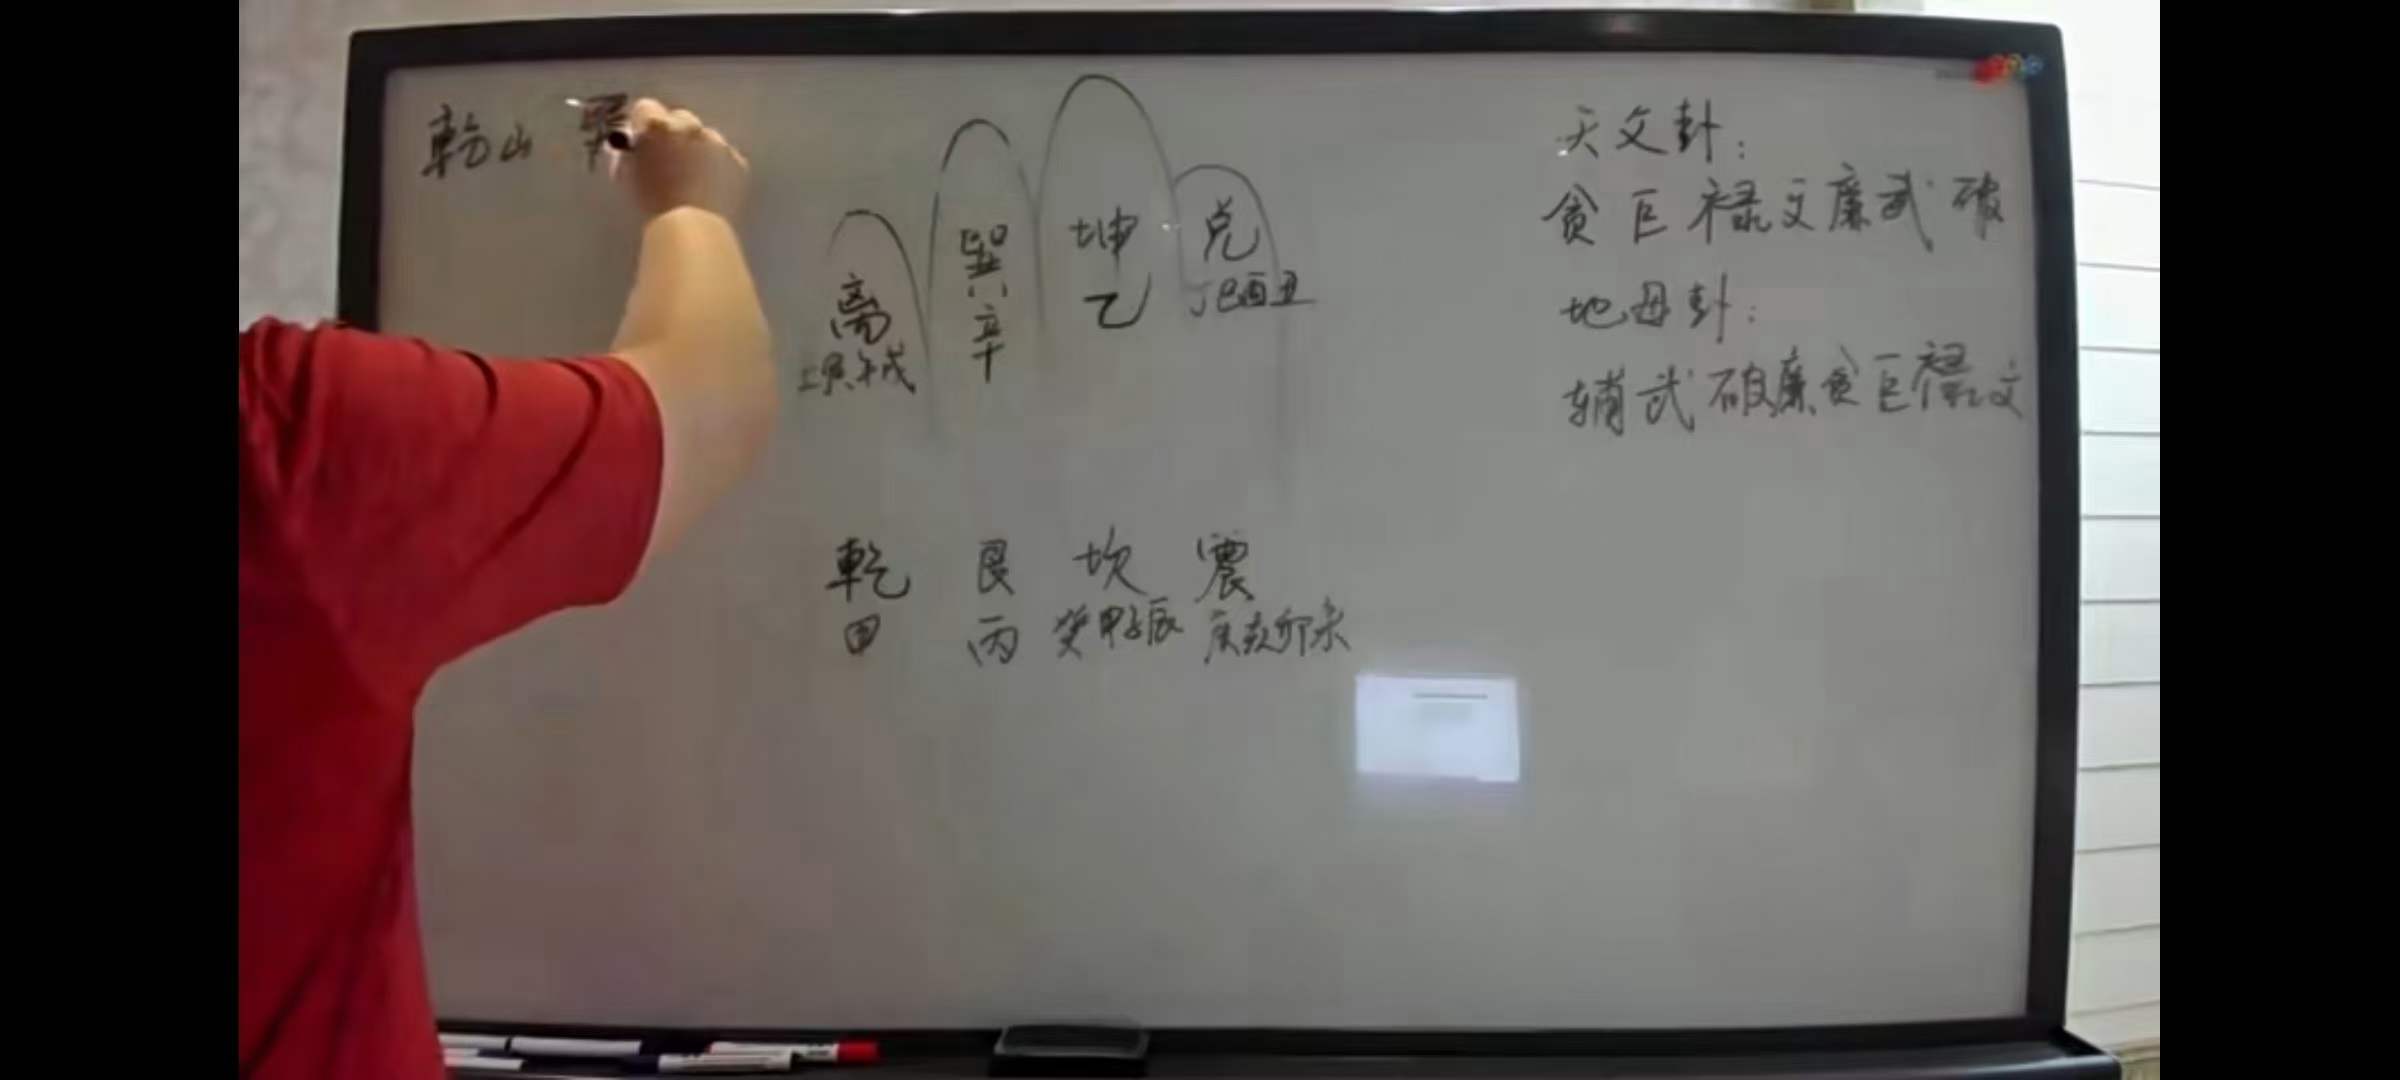 乾山 巽
離 巽 坤 兌
壬寅午戌 辛 乙 丁巳酉丑
乾 艮 坎 震
甲 丙 癸申子辰 庚亥卯未
天父卦：
贪巨禄文廉武破
地母卦：
辅武破廉贪巨禄文